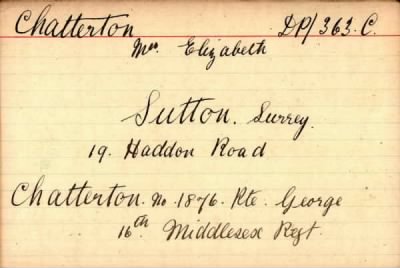 Chatterton DP/363.C.
Mrs Elizabeth
Sutton. Surrey.
19. Haddon Road
Chatterton. No. 1876. Pte. George
16th Middlesex Regt.